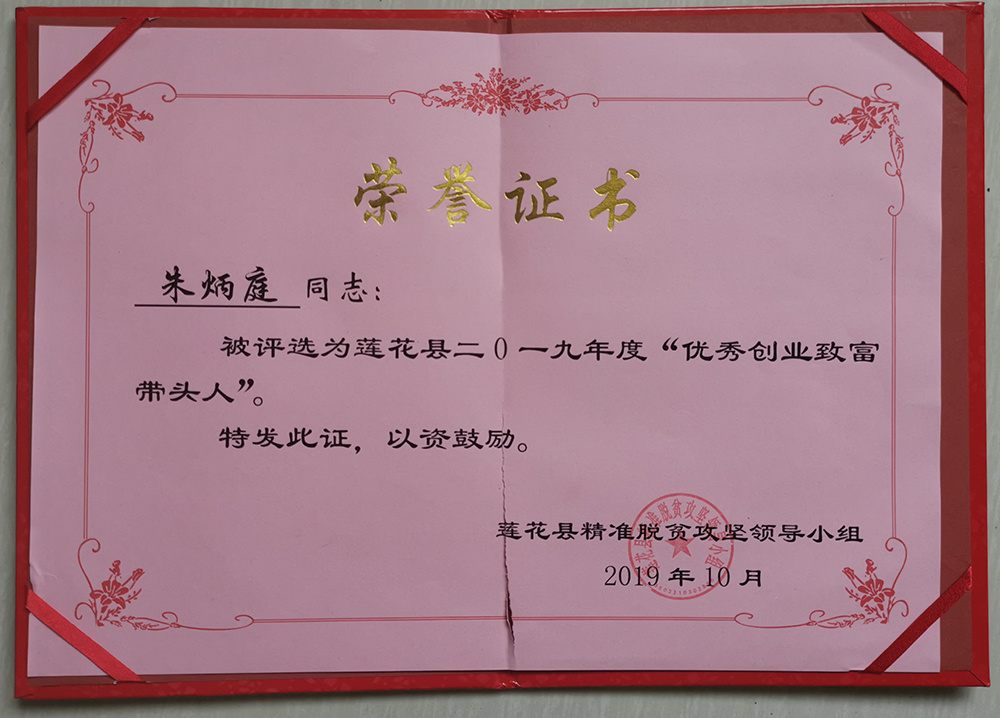 荣誉证书
朱炳庭 同志：
被评选为莲花县二0一九年度“优秀创业致富
带头人”。
特发此证，以资鼓励。
莲花县精准脱贫攻坚领导小组
2019年10月